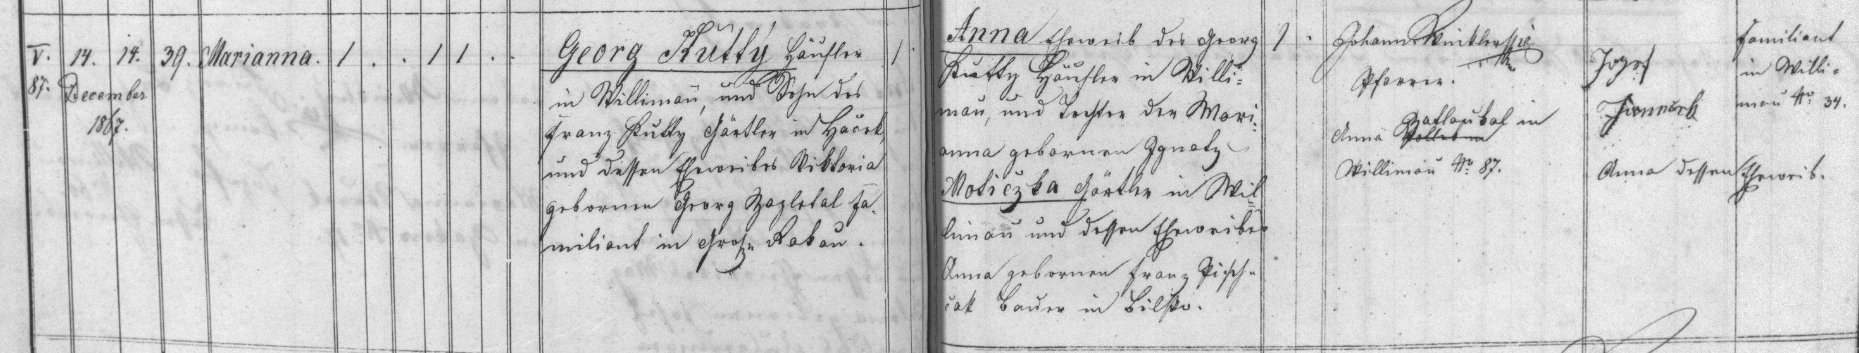 V. 14. 14. 39. Marianna. 1 . . 1 1 . .
87. December
1867.
Georg Kutty Häusler 1
in Willimau, und Sohn des
Franz Kutty Gärtler in
und dessen Eheweibes Viktoria
gebornen Georg Zapletal Fa-
miliant in Groß Rakau.
Anna Eheweib des Georg 1 .
Kutty Häusler in Willi-
mau, und Tochter der Mari-
anna gebornen Ignatz
Moticzka Gärtler in Wil-
limau und dessen Eheweibes
Anna gebornen Franz
Bauer in Bilsko.
Johann Winkler
Pfarrer.
Anna Zatloukal in
Willimau No. 87.
Josef
Anna dessen Eheweib.
Familiant
in Willi-
mau No. 34.